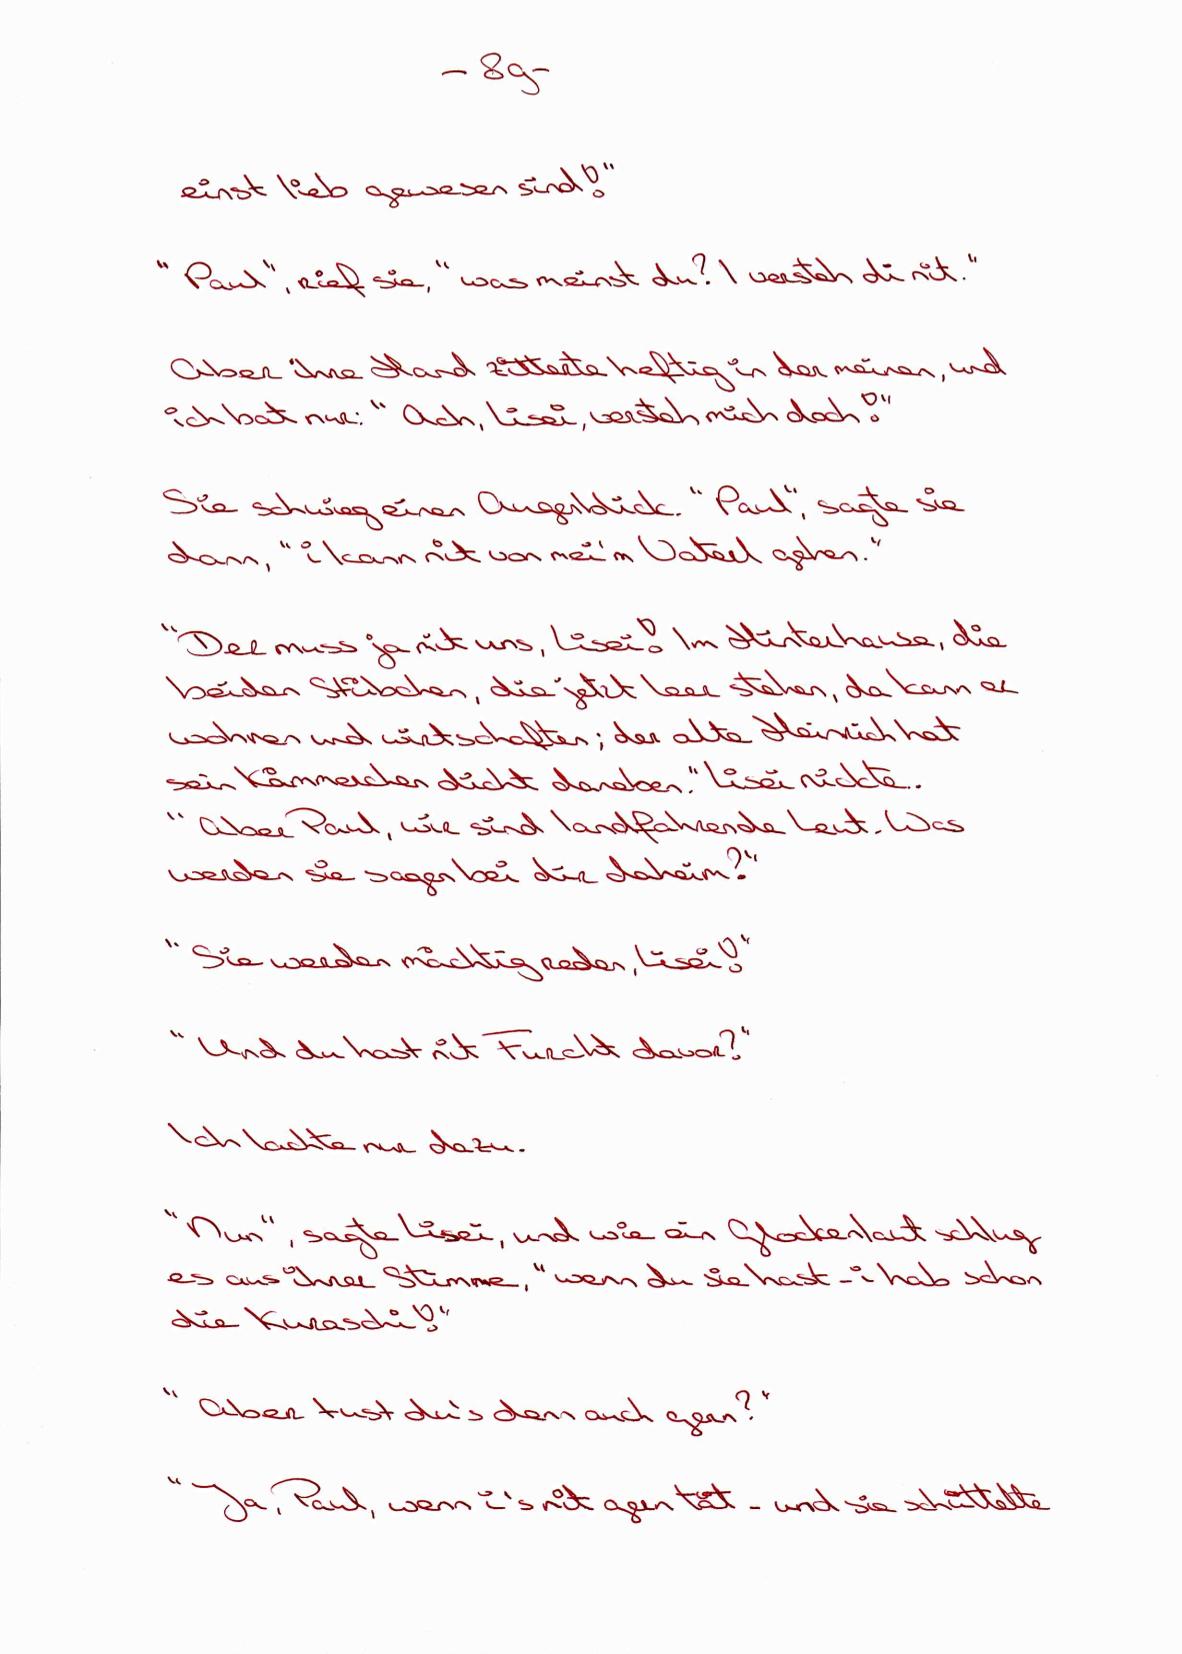 - 89-
einst lieb gewesen sind!"
"Paul", rief sie, "was meinst du? I versteh di nit."
Aber ihre Hand zitterte heftig in der meinen, und
ich bat nur: "Ach, Lisei, versteh mich doch!"
Sie schwieg einen Augenblick. "Paul", sagte sie
dann, "i kann nit von mei'm Vaterl gehen."
"Der muss ja mit uns, Lisei! Im Hinterhause, die
beiden Stübchen, die jetzt leer stehen, da kann er
wohnen und wirtschaften; der alte Heinrich hat
sein Kämmerchen dicht daneben." Lisei nickte.
"Aber Paul, wir sind landfahrende Leut. Was
werden sie sagen bei dir daheim?"
"Sie werden mächtig reden, Lisei!"
"Und du hast nit Furcht davor?"
Ich lachte nur dazu.
"Nun", sagte Lisei, und wie ein Glockenlaut schlug
es aus ihrer Stimme, "wenn du sie hast - i hab schon
die Kuraschi!"
"Aber tust du's denn auch gern?"
"Ja, Paul, wenn i's nit gern tät - und sie schüttelte